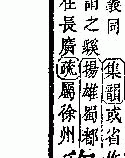 義同集韻或省作
謂之揚雄蜀都
在長廣疏屬徐州